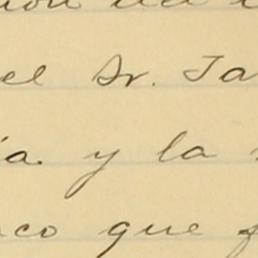 el Sr. Ta
ía. y la
co que